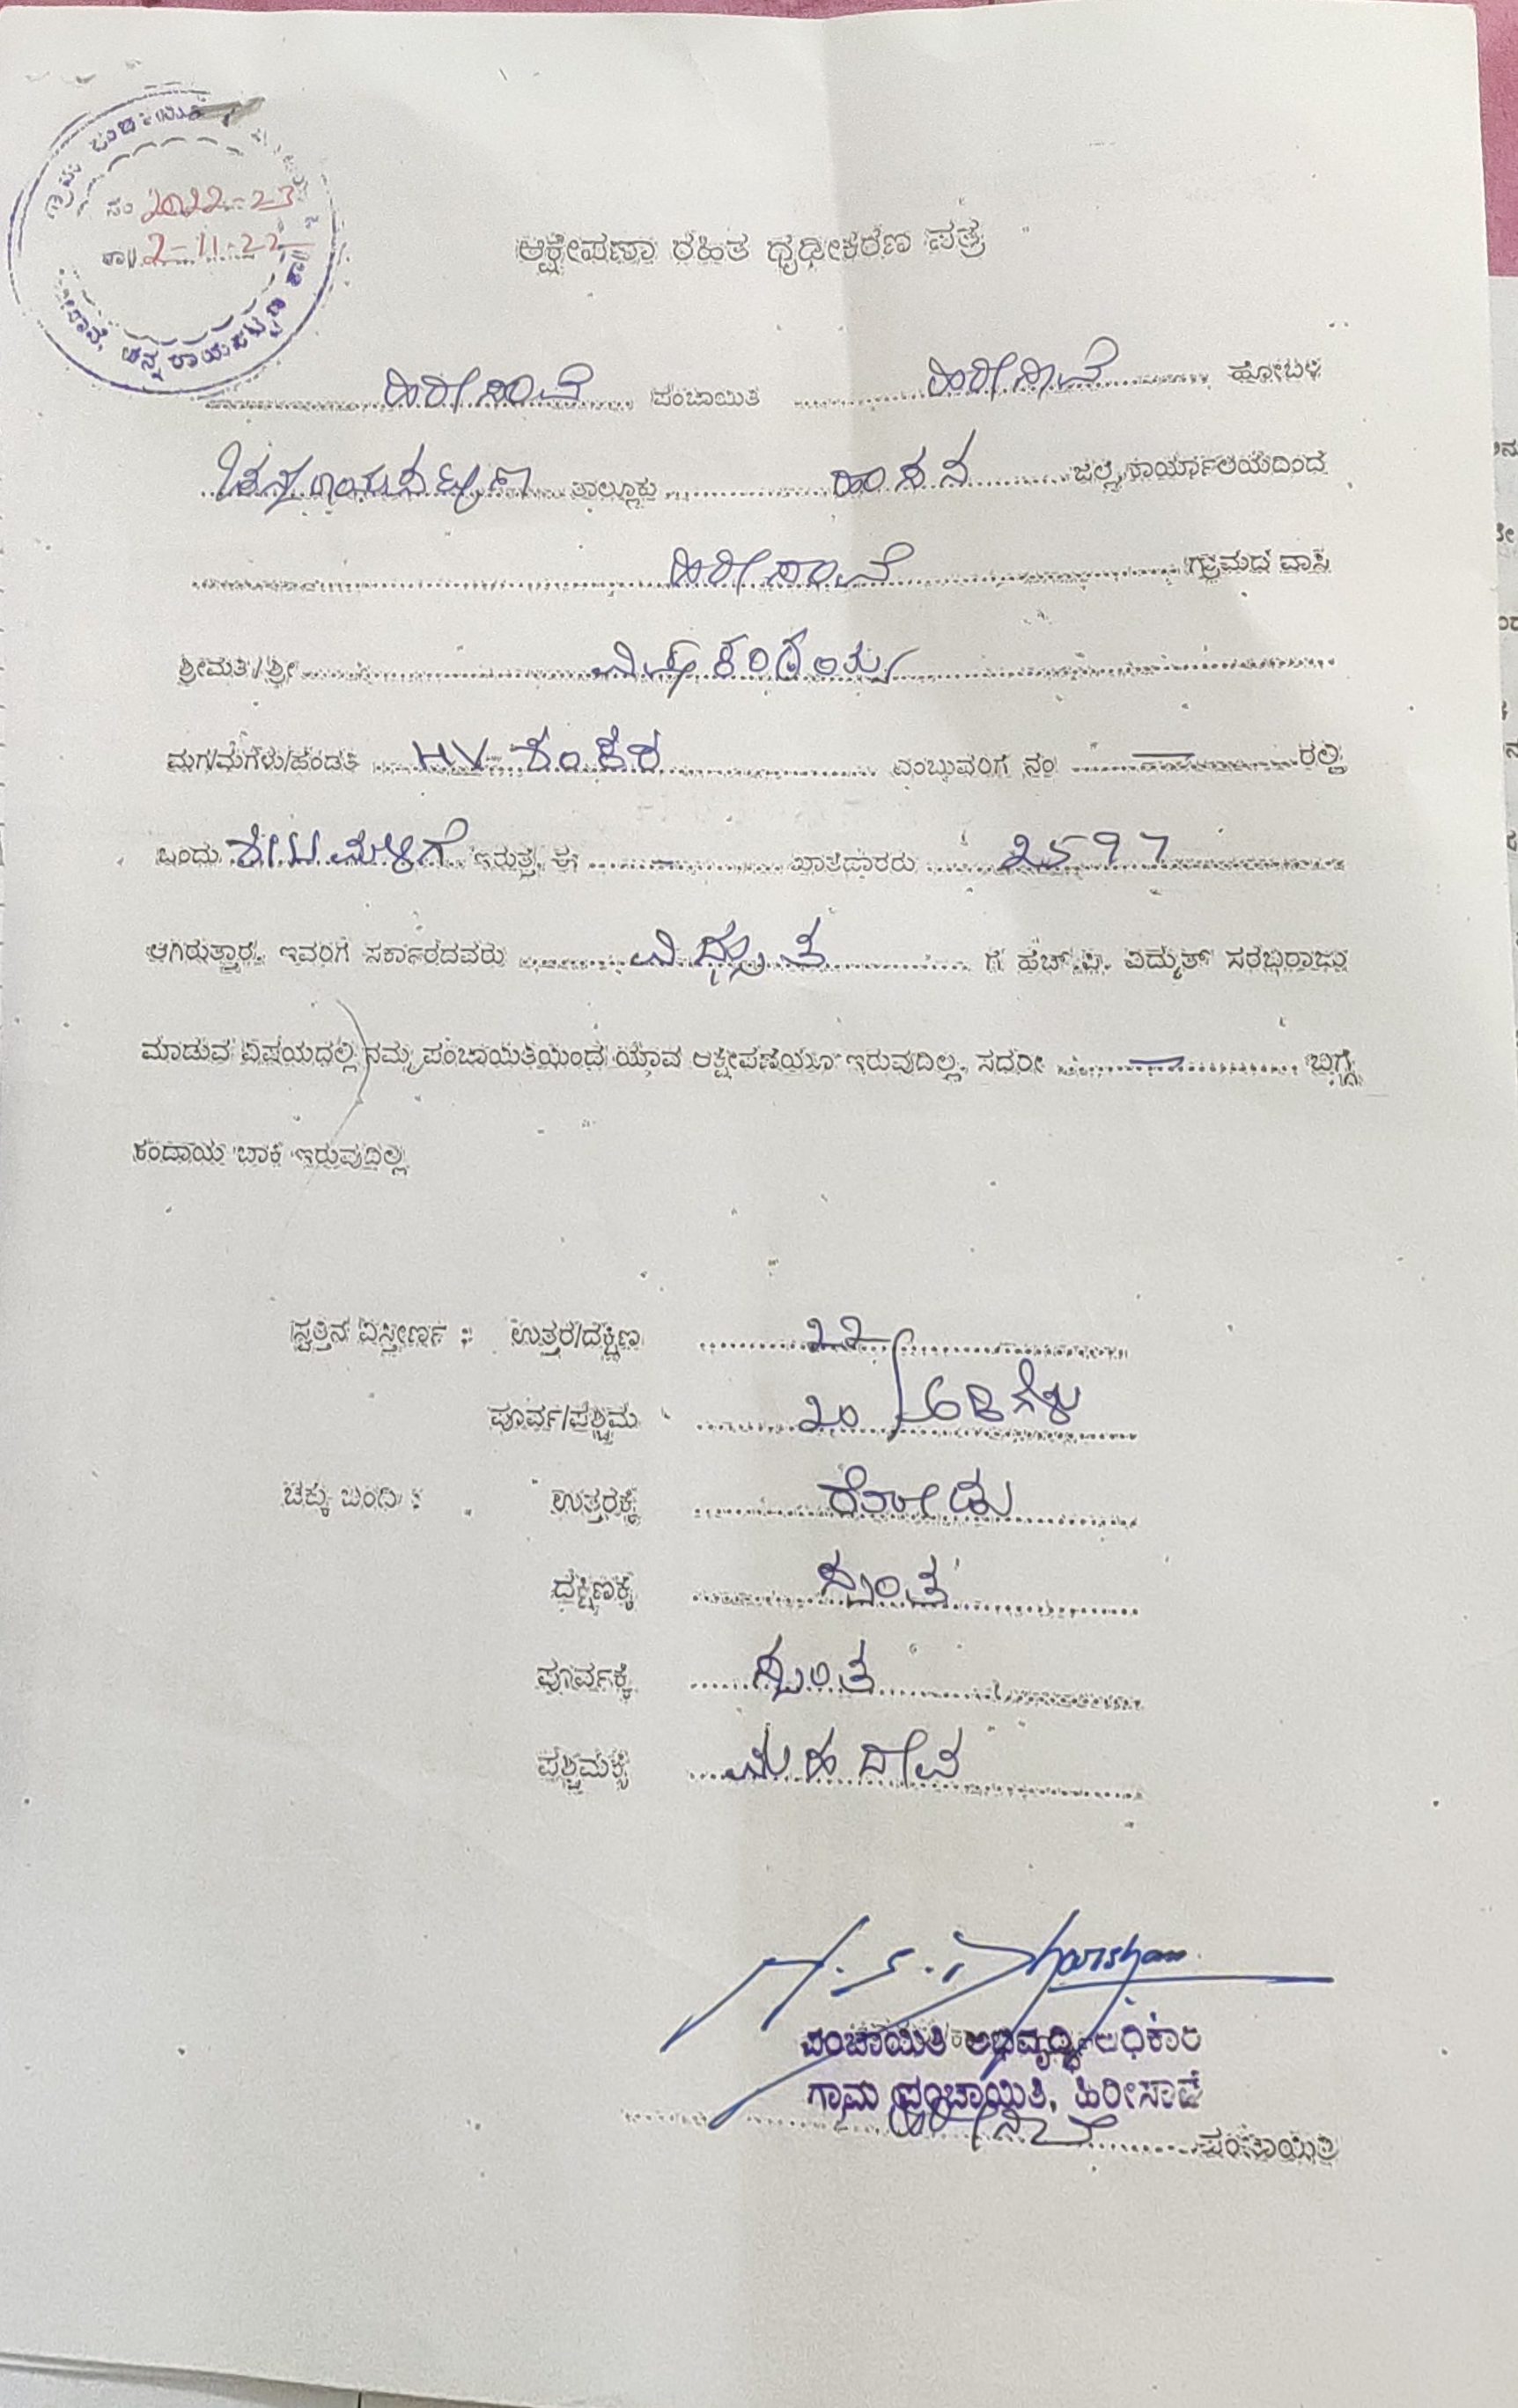 ಗ್ರಾಮ ಪಂಚಾಯಿತಿ
ಸಂ 2022-23
ತಾ॥ 2-11-22
ಚನ್ನರಾಯಪಟ್ಟಣ ತಾ॥
ಆಕ್ಷೇಪಣಾ ರಹಿತ ಧೃಢೀಕರಣ ಪತ್ರ
ಹಿರೀಸಾವೆ ಪಂಚಾಯಿತಿ ಹಿರೀಸಾವೆ ಹೋಬಳಿ
ಚನ್ನರಾಯಪಟ್ಟಣ ತಾಲ್ಲೂಕು ಹಾಸನ ಜಿಲ್ಲೆ ಕಾರ್ಯಾಲಯದಿಂದ
ಹಿರೀಸಾವೆ ಗ್ರಾಮದ ವಾಸಿ
ಶ್ರೀಮತಿ/ಶ್ರೀ
ಮಗ/ಮಗಳು/ಹೆಂಡತಿ HV ಶಂಕರ ಎಂಬುವರಿಗೆ ನಂ — ರಲ್ಲಿ
ಒಂದು ಇರುತ್ತೆ. ಈ — ಖಾತೆದಾರರು 2597
ಆಗಿರುತ್ತಾರೆ. ಇವರಿಗೆ ಸರ್ಕಾರದವರು ವಿದ್ಯುತ ಗೆ ಹೆಚ್.ಪಿ. ವಿದ್ಯುತ್ ಸರಬರಾಜು
ಮಾಡುವ ವಿಷಯದಲ್ಲಿ ನಮ್ಮ ಪಂಚಾಯಿತಿಯಿಂದ ಯಾವ ಆಕ್ಷೇಪಣೆಯೂ ಇರುವುದಿಲ್ಲ. ಸದರೀ — ಬಗ್ಗೆ
ಕಂದಾಯ ಬಾಕಿ ಇರುವುದಿಲ್ಲ
ಸ್ವತ್ತಿನ ವಿಸ್ತೀರ್ಣ : ಉತ್ತರ/ದಕ್ಷಿಣ 22
ಪೂರ್ವ/ಪಶ್ಚಿಮ 20 ಅಡಿಗಳು
ಚಕ್ಕು ಬಂದಿ : ಉತ್ತರಕ್ಕೆ ರೋಡು
ದಕ್ಷಿಣಕ್ಕೆ ಸ್ವಂತ
ಪೂರ್ವಕ್ಕೆ ಸ್ವಂತ
ಪಶ್ಚಿಮಕ್ಕೆ ಮಹದೇವ
H.S. Dharshan
ಪಂಚಾಯಿತಿ ಅಭಿವೃದ್ಧಿ ಅಧಿಕಾರಿ
ಗ್ರಾಮ ಪಂಚಾಯಿತಿ, ಹಿರೀಸಾವೆ
ಹಿರೀಸಾವೆ ಪಂಚಾಯಿತಿ